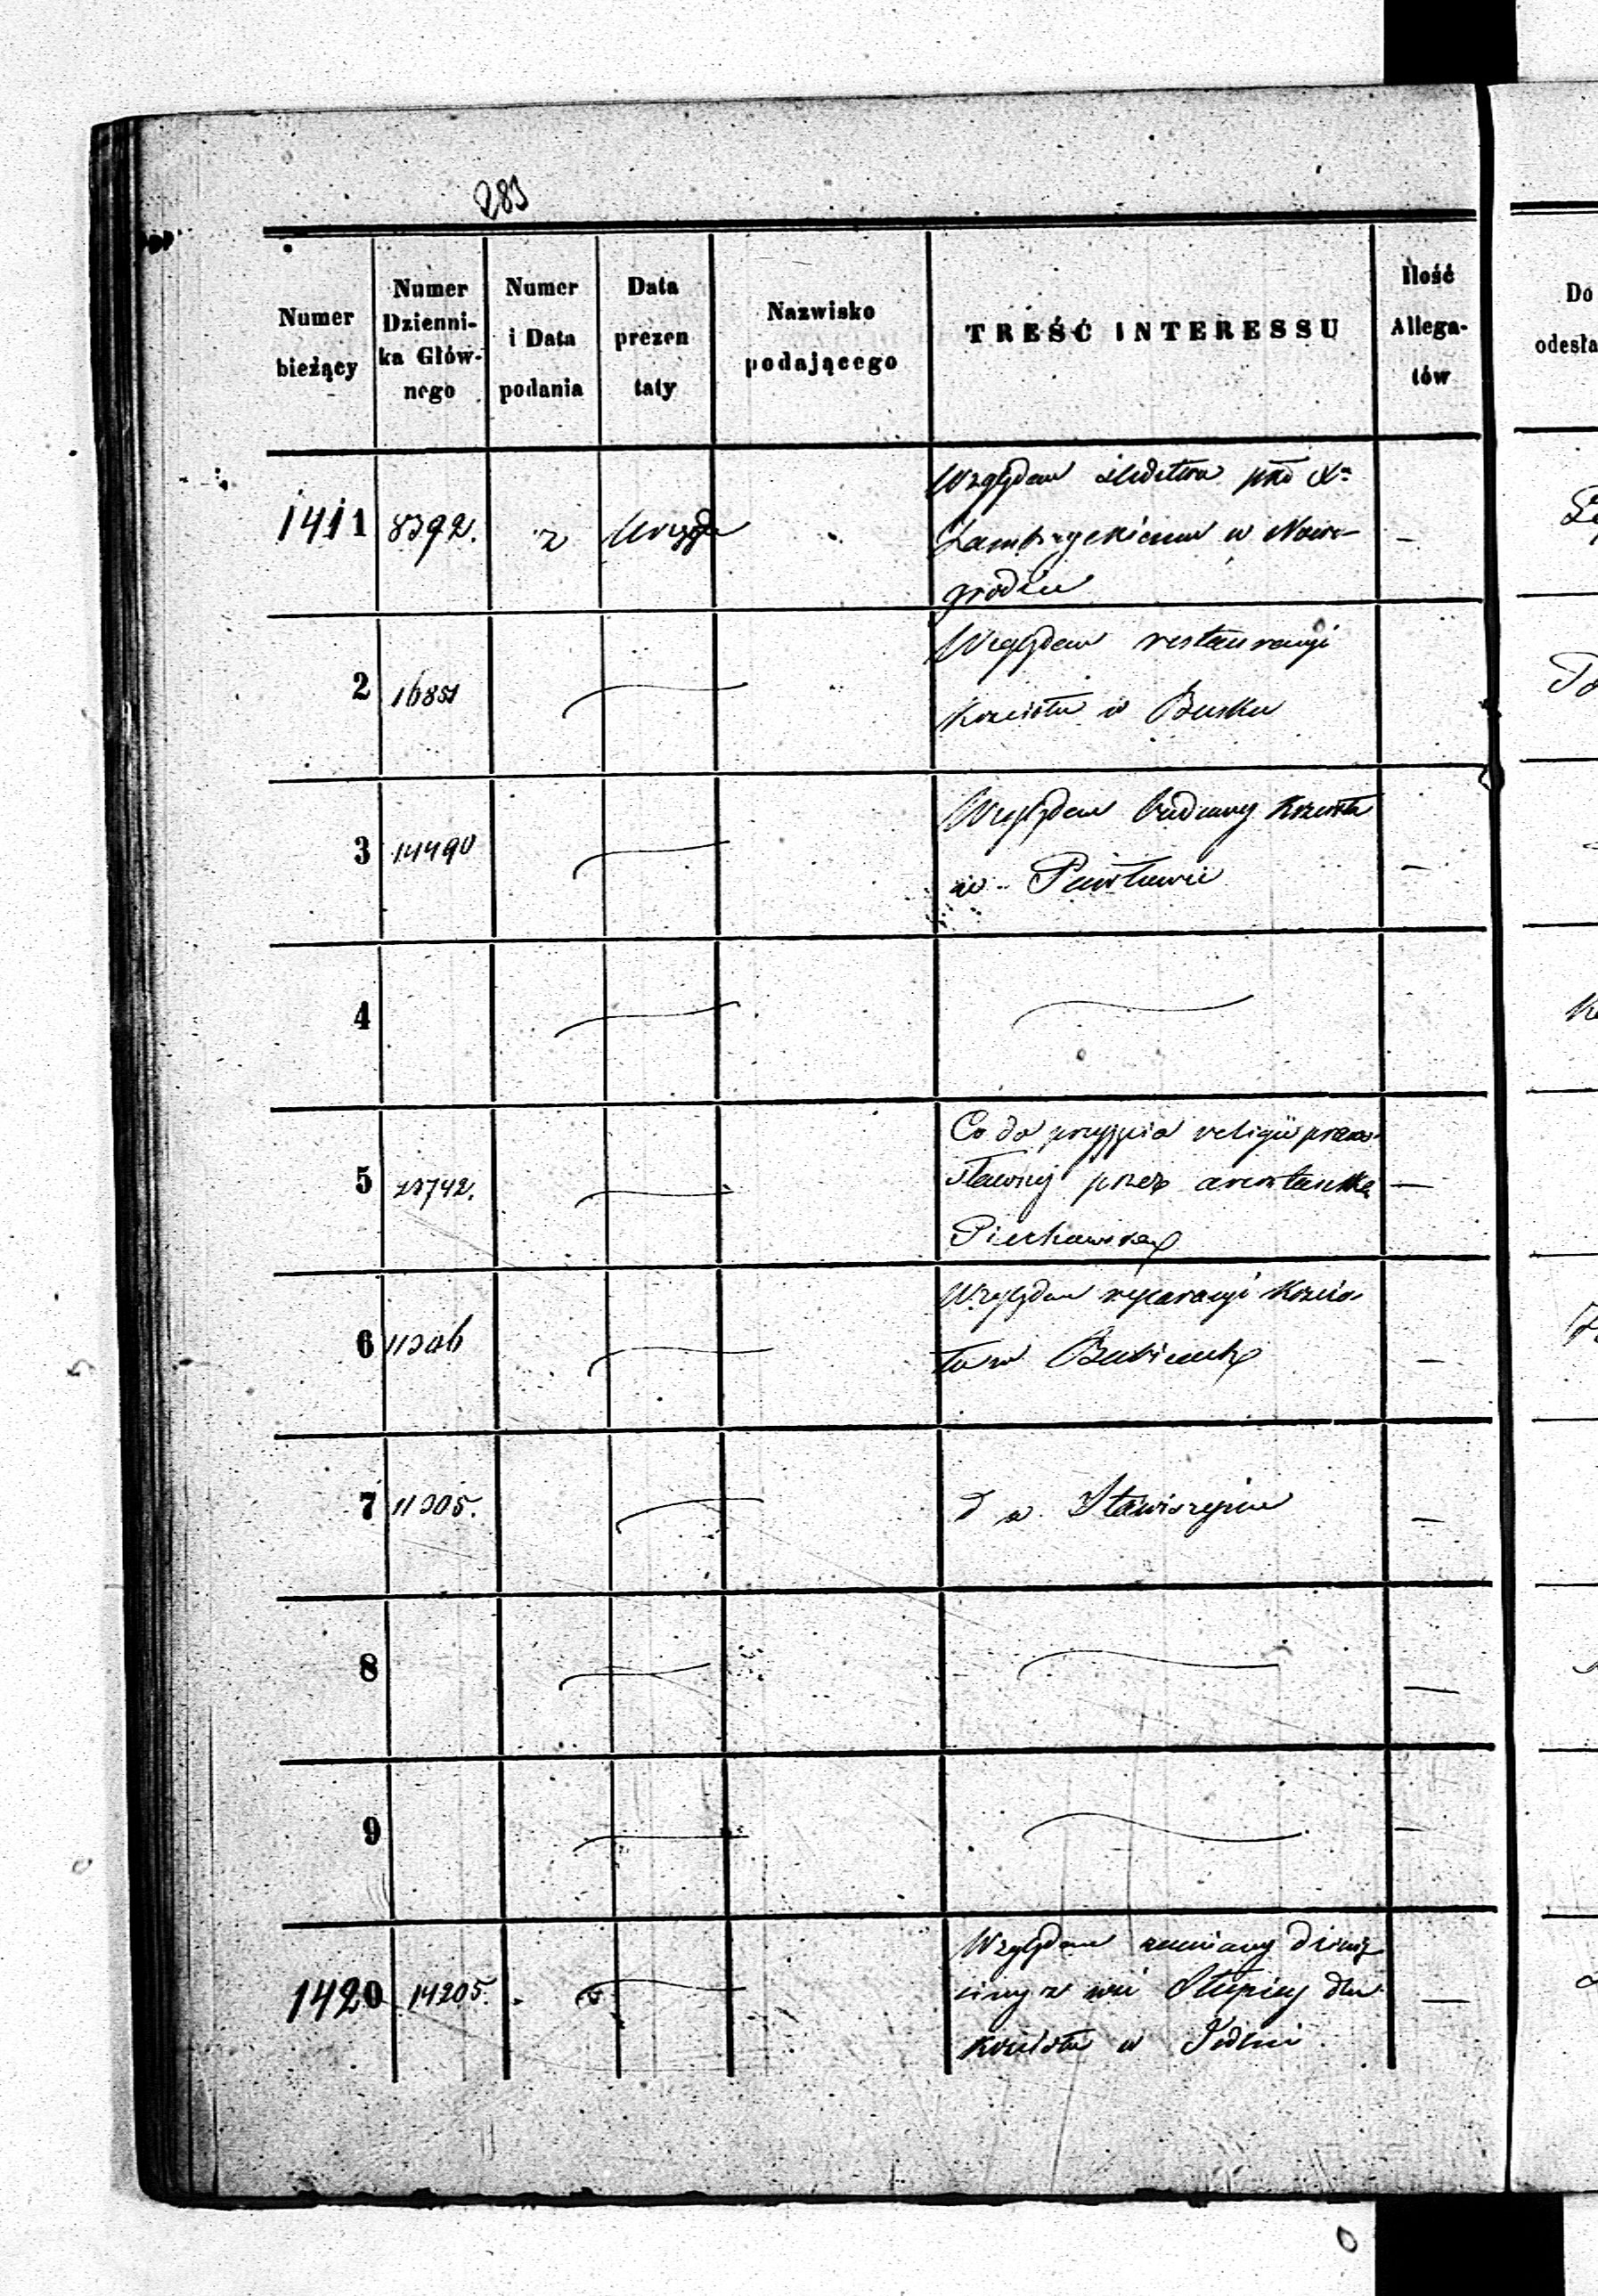 283
Numer bieżący
Numer Dzienni-ka Głów-nego
Numer i Data podania
Data prezen taty
Nazwisko podającego
TREŚĆ INTERESSU
Ilość Allega-tów
Do odesła
1411 8392. z Urzędu Względem śledztwa pko Xu
w Nowo-
grodzie
2 Względem restauracyi
Kościoła w Busku
3 14490 Względem budowy Kościoła
w Pawłowie
4
5 Co do przyjęcia religii prawo-
sławnej przez aresztantkę
6 11306 Względem reparacyi Kościo-
ła w
7 11305. d w Stawiszynie
8
9
1420 14205. Względem zamiany dziesię
ciny z wsi Słupicy dla
Kościoła w Jedlni